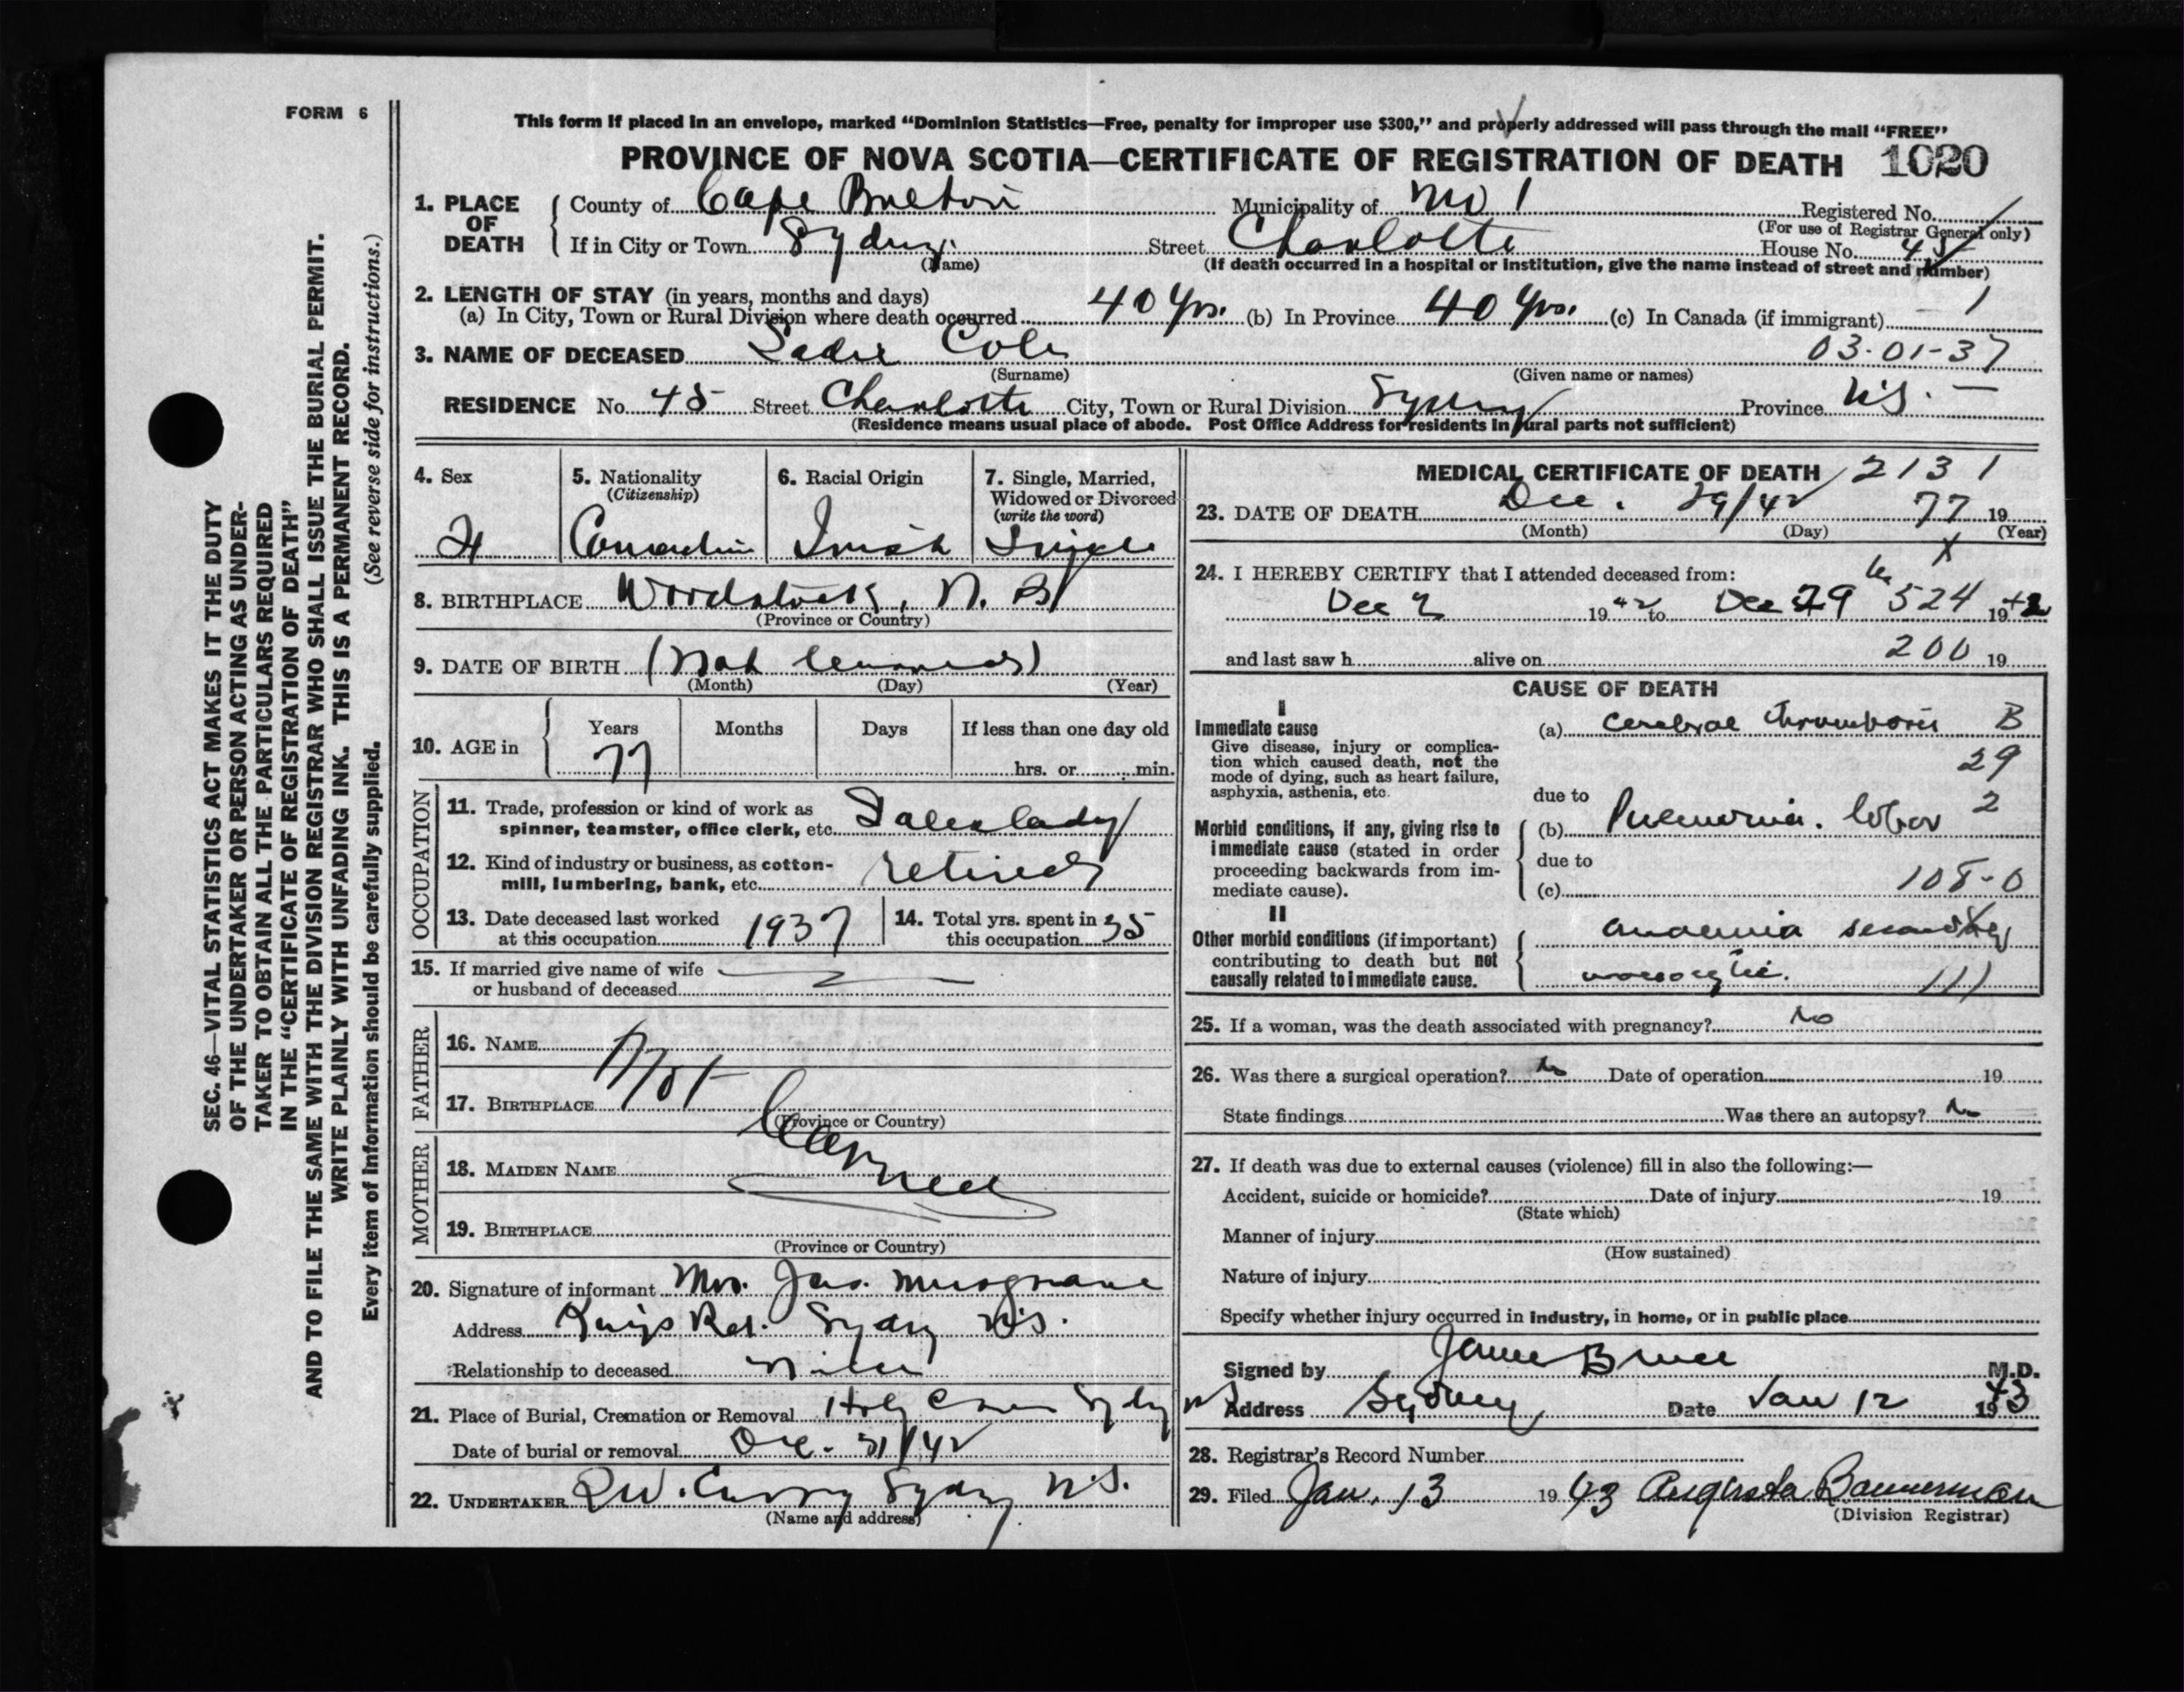 FORM 6
This form if placed in an envelope, marked "Dominion Statistics—Free, penalty for improper use $300," and properly addressed will pass through the mail "FREE"
PROVINCE OF NOVA SCOTIA—CERTIFICATE OF REGISTRATION OF DEATH 1020
1. PLACE OF DEATH County of Cape Breton Municipality of No 1 Registered No.
(For use of Registrar General only)
If in City or Town Sydney Street Charlotte House No. 45
(Name) (If death occurred in a hospital or institution, give the name instead of street and number)
2. LENGTH OF STAY (in years, months and days)
(a) In City, Town or Rural Division where death occurred 40 Yrs. (b) In Province 40 Yrs. (c) In Canada (if immigrant) 1
3. NAME OF DECEASED Sadie Cole 03-01-37
(Surname) (Given name or names)
RESIDENCE No. 45 Street Charlotte City, Town or Rural Division Sydney Province N.S. —
(Residence means usual place of abode. Post Office Address for residents in rural parts not sufficient)
4. Sex
5. Nationality (Citizenship) Canadian
6. Racial Origin Irish
7. Single, Married, Widowed or Divorced (write the word) Single
8. BIRTHPLACE Woodstock, N. B.
(Province or Country)
9. DATE OF BIRTH (Not
(Month) (Day) (Year)
10. AGE in Years Months Days If less than one day old
77 hrs. or min.
OCCUPATION
11. Trade, profession or kind of work as
spinner, teamster, office clerk, etc. Saleslady
12. Kind of industry or business, as cotton-
mill, lumbering, bank, etc. retired
13. Date deceased last worked
at this occupation 1937
14. Total yrs. spent in
this occupation 35
15. If married give name of wife
or husband of deceased
FATHER
16. NAME
Not
17. BIRTHPLACE
(Province or Country)
MOTHER
18. MAIDEN NAME
19. BIRTHPLACE
(Province or Country)
20. Signature of informant Mrs. Jas. Musgrave
Address Kings Rd. Sydney N.S.
Relationship to deceased
21. Place of Burial, Cremation or Removal Holy Cross Sydney N.S.
Date of burial or removal Dec. 31/42
22. UNDERTAKER Curry Sydney N.S.
(Name and address)
MEDICAL CERTIFICATE OF DEATH 2131
23. DATE OF DEATH Dec. 29/42 77 19
(Month) (Day) (Year)
X
24. I HEREBY CERTIFY that I attended deceased from:
Dec 2 1942 to Dec 29 524 1942
and last saw h alive on 200 19
CAUSE OF DEATH
I
Immediate cause
Give disease, injury or complica-
tion which caused death, not the
mode of dying, such as heart failure,
asphyxia, asthenia, etc.
(a) Cerebral thrombosis B
29
due to
Morbid conditions, if any, giving rise to
immediate cause (stated in order
proceeding backwards from im-
mediate cause).
(b) Pneumonia. lobar 2
due to
(c) 108-0
II
Other morbid conditions (if important)
contributing to death but not
causally related to immediate cause.
anaemia secondary
111
25. If a woman, was the death associated with pregnancy? No
26. Was there a surgical operation? No Date of operation 19
State findings Was there an autopsy? No
27. If death was due to external causes (violence) fill in also the following:—
Accident, suicide or homicide? Date of injury 19
(State which)
Manner of injury
(How sustained)
Nature of injury
Specify whether injury occurred in industry, in home, or in public place
Signed by James Bruce M.D.
Address Sydney Date Jan 12 1943
28. Registrar's Record Number
29. Filed Jan. 13 1943 Augusta Bannerman
(Division Registrar)
SEC. 46—VITAL STATISTICS ACT MAKES IT THE DUTY
OF THE UNDERTAKER OR PERSON ACTING AS UNDER-
TAKER TO OBTAIN ALL THE PARTICULARS REQUIRED
IN THE "CERTIFICATE OF REGISTRATION OF DEATH"
AND TO FILE THE SAME WITH THE DIVISION REGISTRAR WHO SHALL ISSUE THE BURIAL PERMIT.
WRITE PLAINLY WITH UNFADING INK. THIS IS A PERMANENT RECORD.
Every item of information should be carefully supplied. (See reverse side for instructions.)